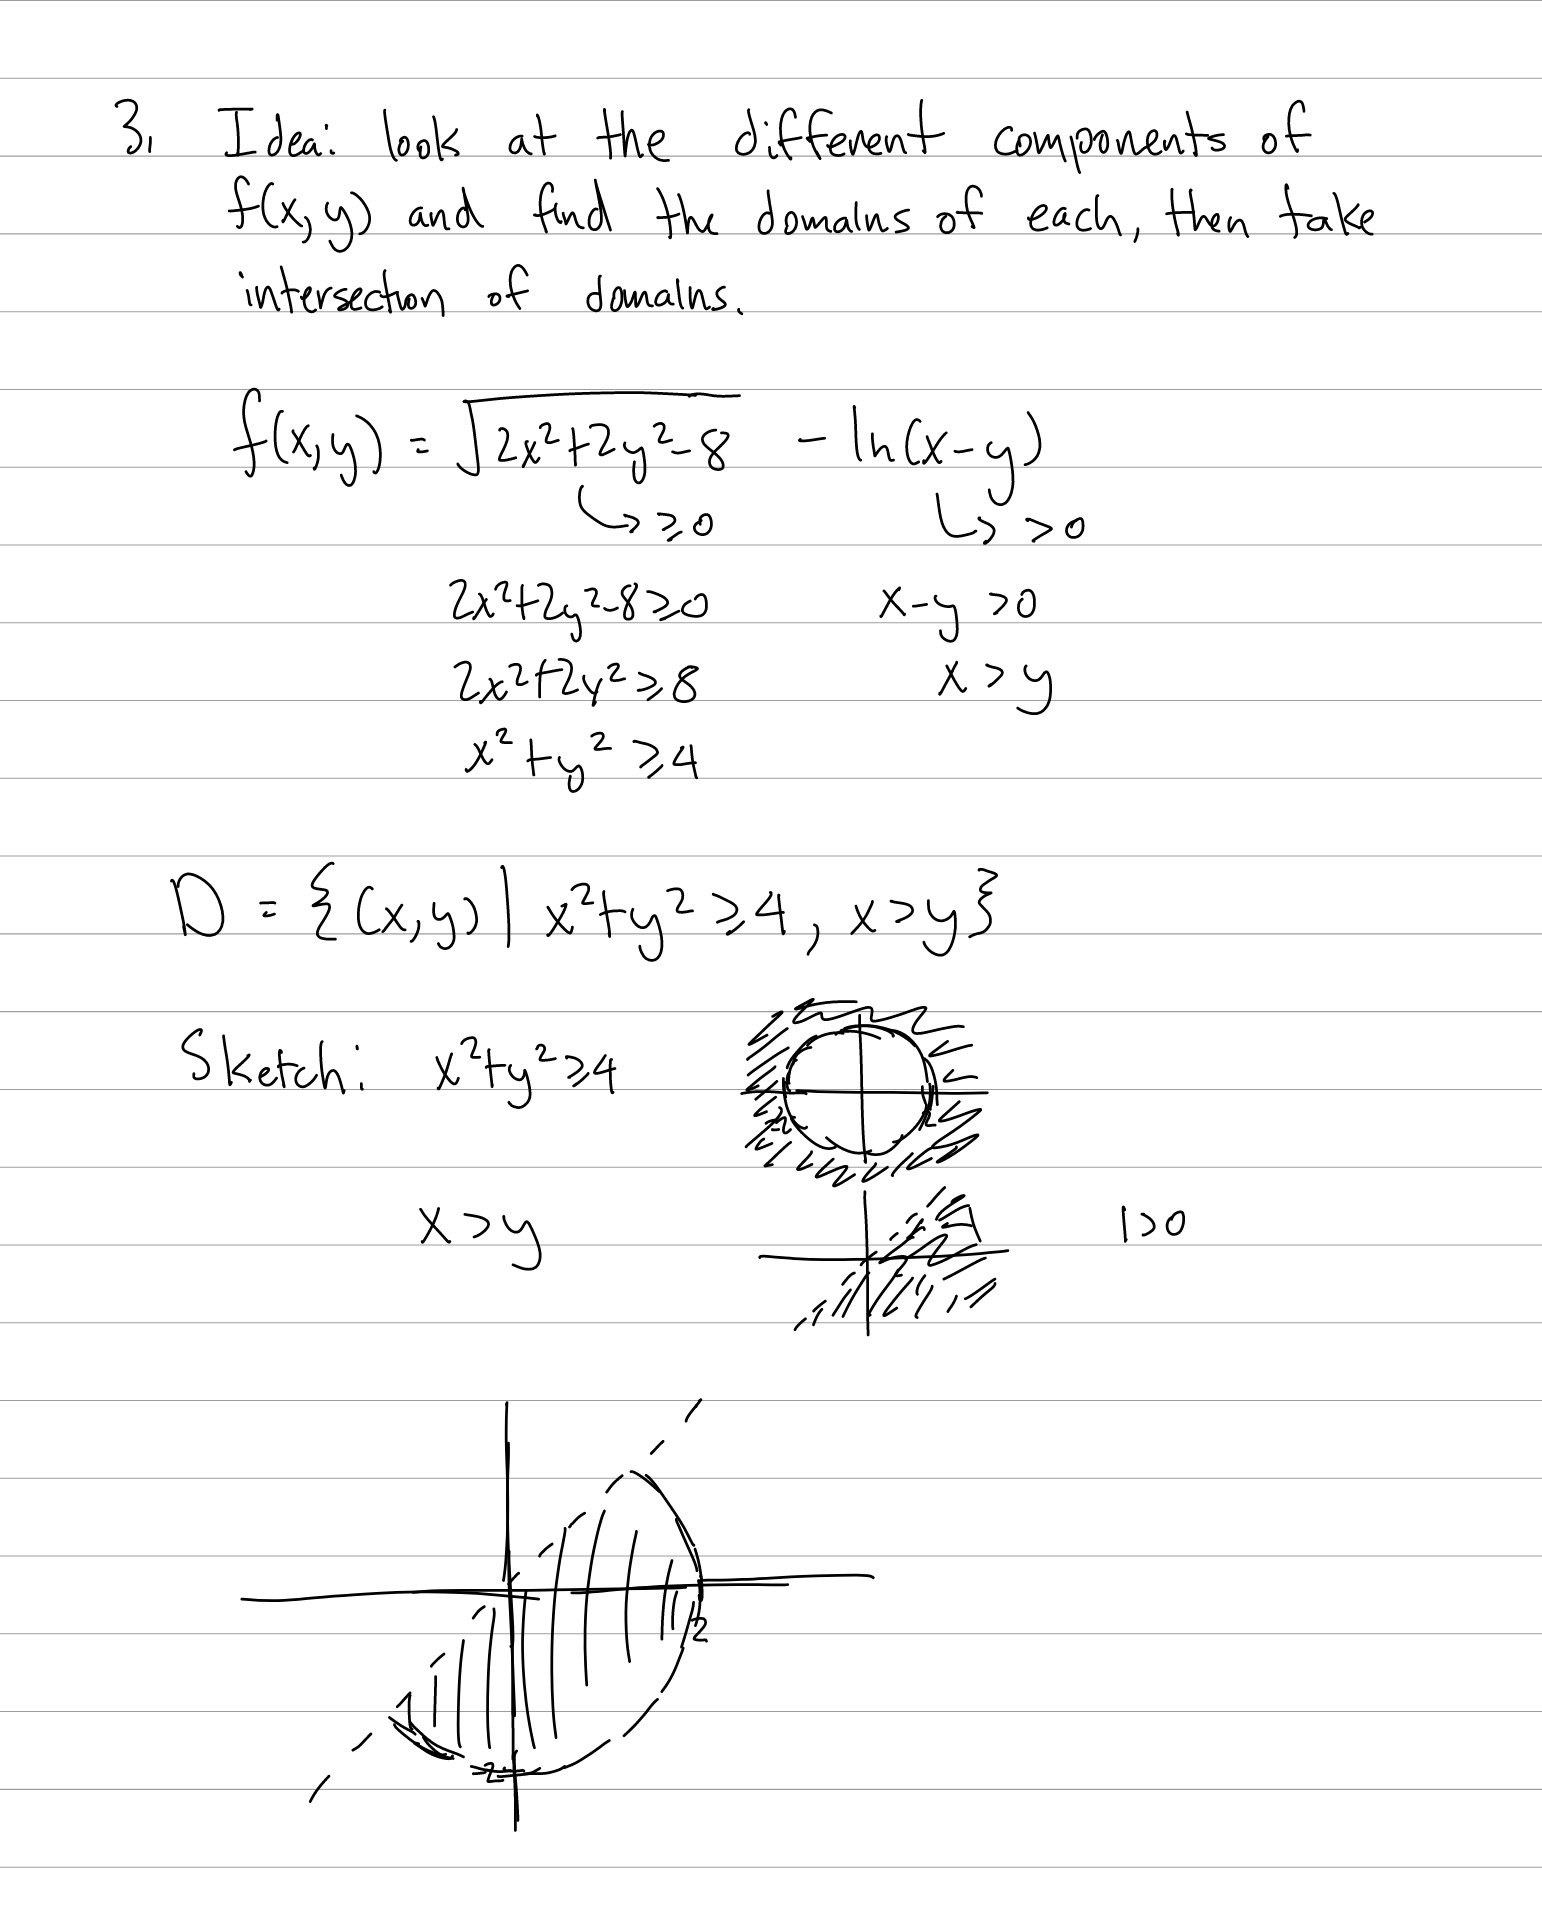 3. Idea: look at the different components of
f(x,y) and find the domains of each, then take
intersection of domains.
f(x,y) = √(2x²+2y²-8) - ln(x-y)
↳ ≥0 ↳ >0
2x²+2y²-8≥0 x-y >0
2x²+2y²≥8 x>y
x²+y²≥4
D = {(x,y) | x²+y²≥4, x>y}
Sketch: x²+y²≥4
-2 2
x>y 1>0
2
-2